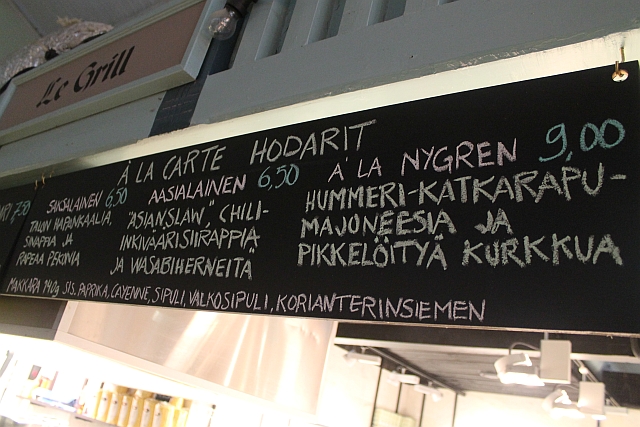 Le Grill
À LA CARTE HODARIT
7,50
SAKSALAINEN 6,50
TALON HAPANKAALIA,
SINAPPIA JA
RAPEAA PEKONIA
AASIALAINEN 6,50
"ASIANSLAW," CHILI-
INKIVÄÄRISIIRAPPIA
JA WASABIHERNEITÄ
À LA NYGREN 9,00
HUMMERI-KATKARAPU-
MAJONEESIA JA
PIKKELÖITYÄ KURKKUA
MAKKARA 140g SIS. PAPRIKA, CAYENNE, SIPULI, VALKOSIPULI, KORIANTERINSIEMEN